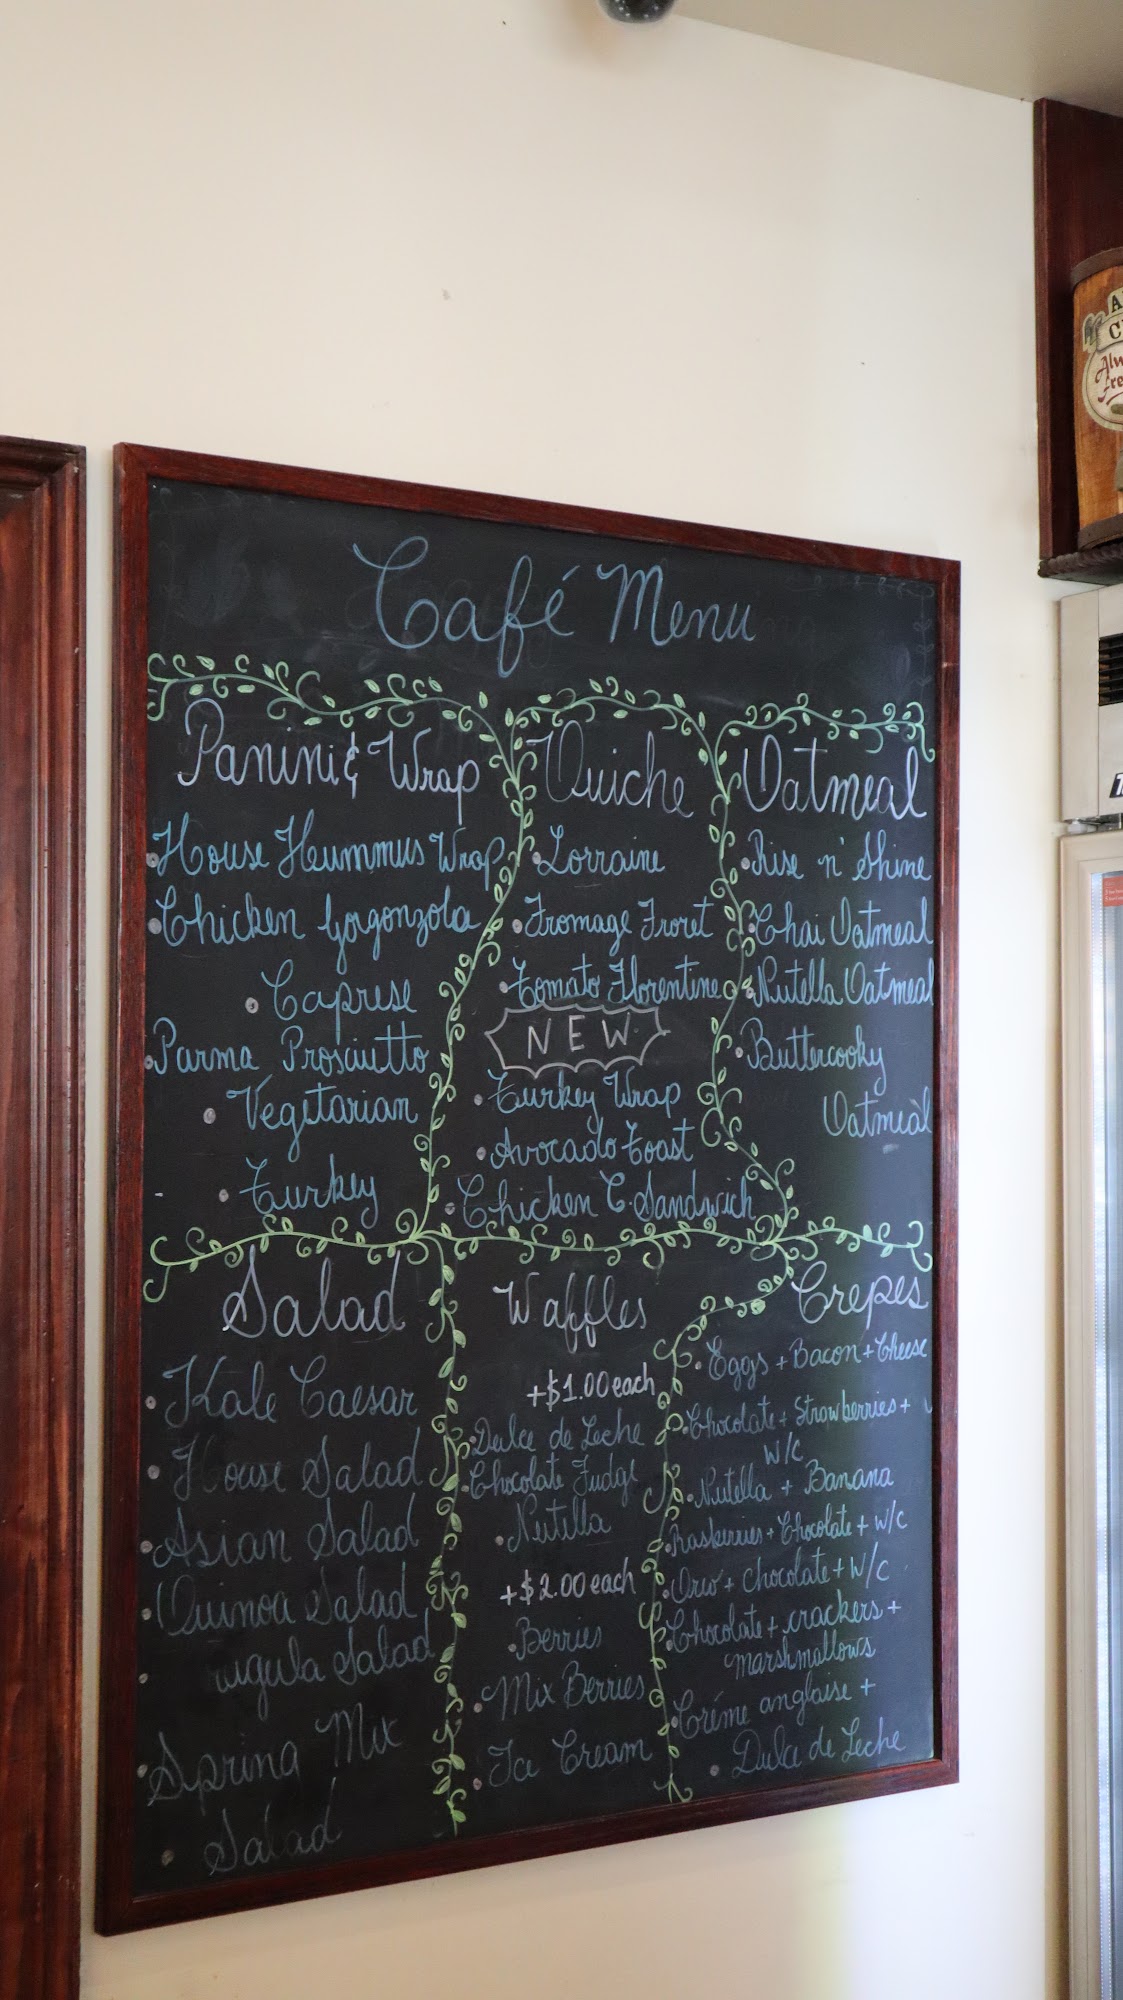 Café Menu
Panini & Wrap
House Hummus Wrap
Chicken Gorgonzola
Caprese
Parma Prosciutto
Vegetarian
Turkey
Quiche
Lorraine
Fromage Froret
Tomato Florentine
NEW
Turkey Wrap
Avocado Toast
Chicken C. Sandwich
Oatmeal
Rise n' Shine
Chai Oatmeal
Nutella Oatmeal
Buttercooky
Oatmeal
Salad
Kale Caesar
House Salad
Asian Salad
Quinoa Salad
rugula Salad
Spring Mix
Salad
Waffles
+$1.00 each
Dulce de Leche
Chocolate Fudge
Nutella
+$2.00 each
Berries
Mix Berries
Ice Cream
Crepes
Eggs + Bacon + Cheese
Chocolate + Strawberries +
W/C
Nutella + Banana
Raskerries + Chocolate + W/C
Orio + Chocolate + W/C
Chocolate + crackers +
marshmallows
Créme anglaise +
Dulce de Leche